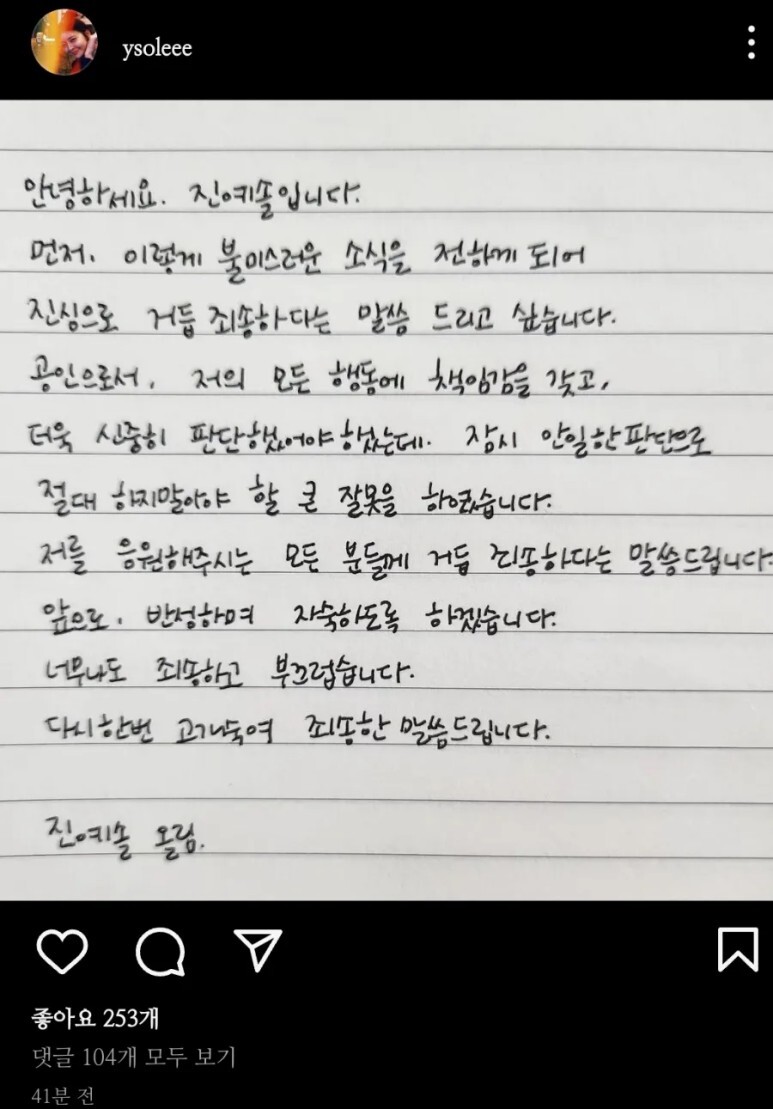 ysoleee
안녕하세요. 진예솔입니다.
먼저, 이렇게 불미스러운 소식을 전하게 되어
진심으로 거듭 죄송하다는 말씀 드리고 싶습니다.
공인으로서, 저의 모든 행동에 책임감을 갖고,
더욱 신중히 판단했어야했는데. 잠시 안일한판단으로
절대 하지말아야 할 큰 잘못을 하였습니다.
저를 응원해주시는 모든 분들께 거듭 죄송하다는 말씀드립니다.
앞으로, 반성하며 자숙하도록 하겠습니다.
너무나도 죄송하고 부끄럽습니다.
다시한번 고개숙여 죄송한 말씀드립니다.
진예솔 올림.
좋아요 253개
댓글 104개 모두 보기
41분 전